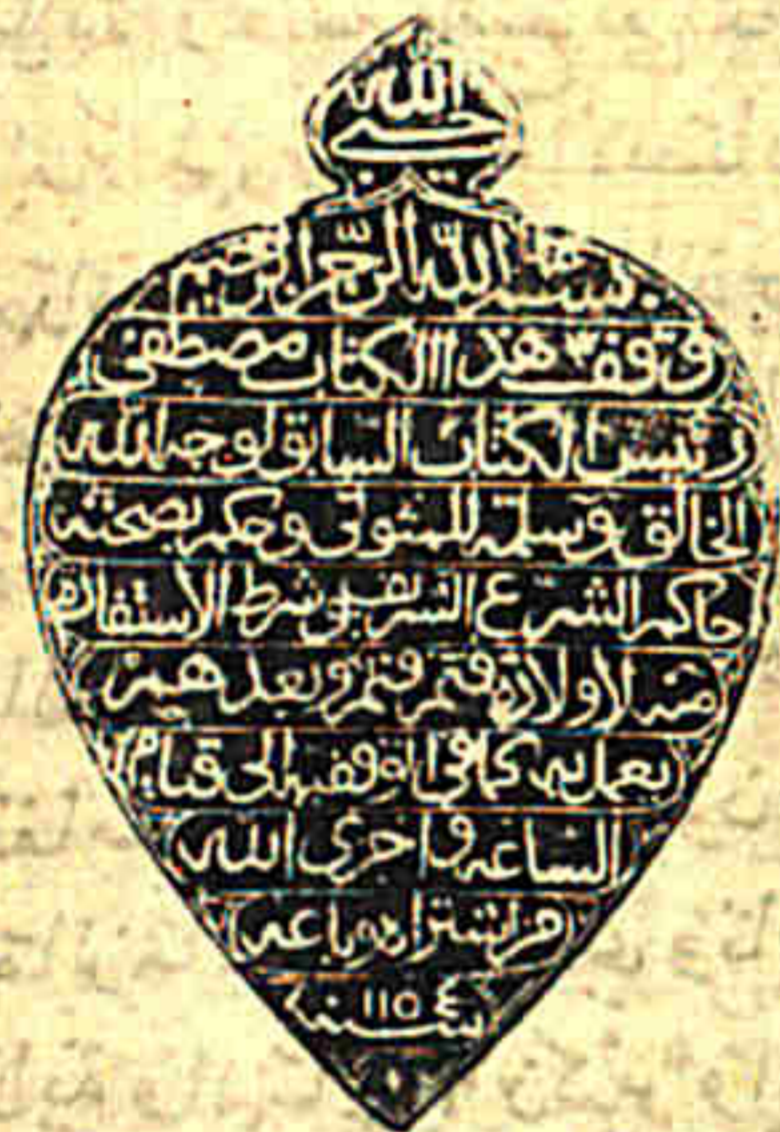 حسبي الله
بسم الله الرحمن الرحيم
وقف هذا الكتاب مصطفى
رئيس الكتاب السابق لوجه الله
الخالق وسلمه للمتولى وحكم بصحته
حاكم الشرع الشريف بق شرط الاستفادة
منه لاولاده فتم فتم وبعدهم
يعمل به كما في الوقفيه الى قيام
الساعه واخزى الله
من اشتراه وباعه
سنة ١١٥٤